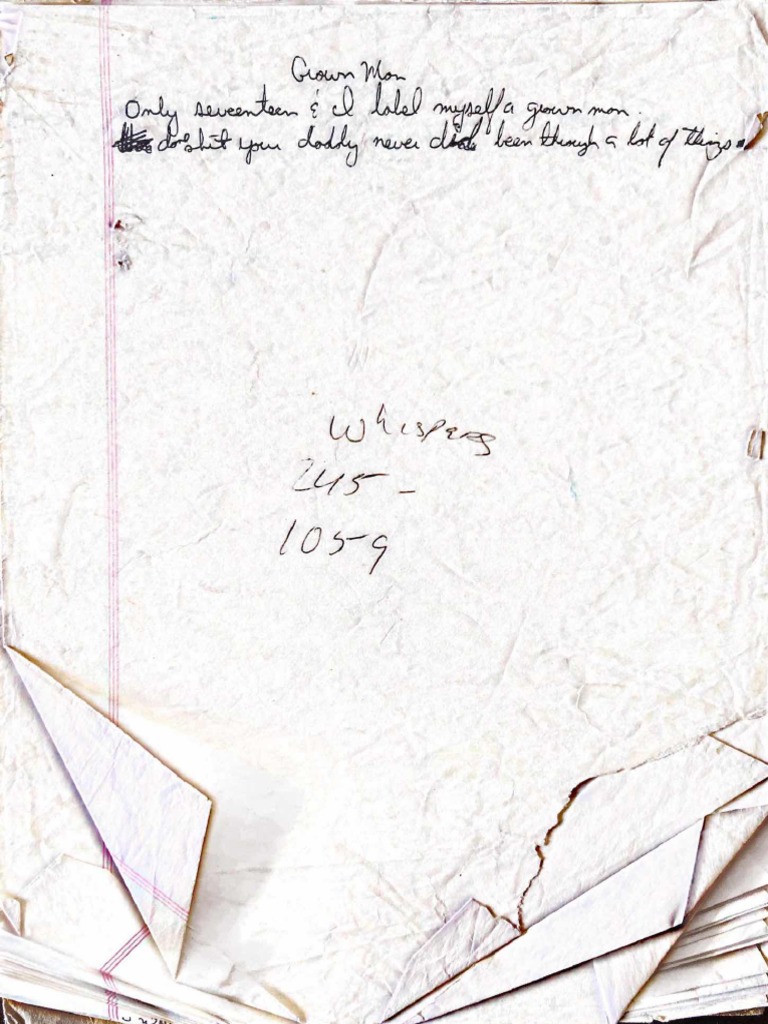 Grown Man
Only seveenteen & I label myself a grown man.
do shit your daddy never did been through a lot of things
Whispers
245-
1059